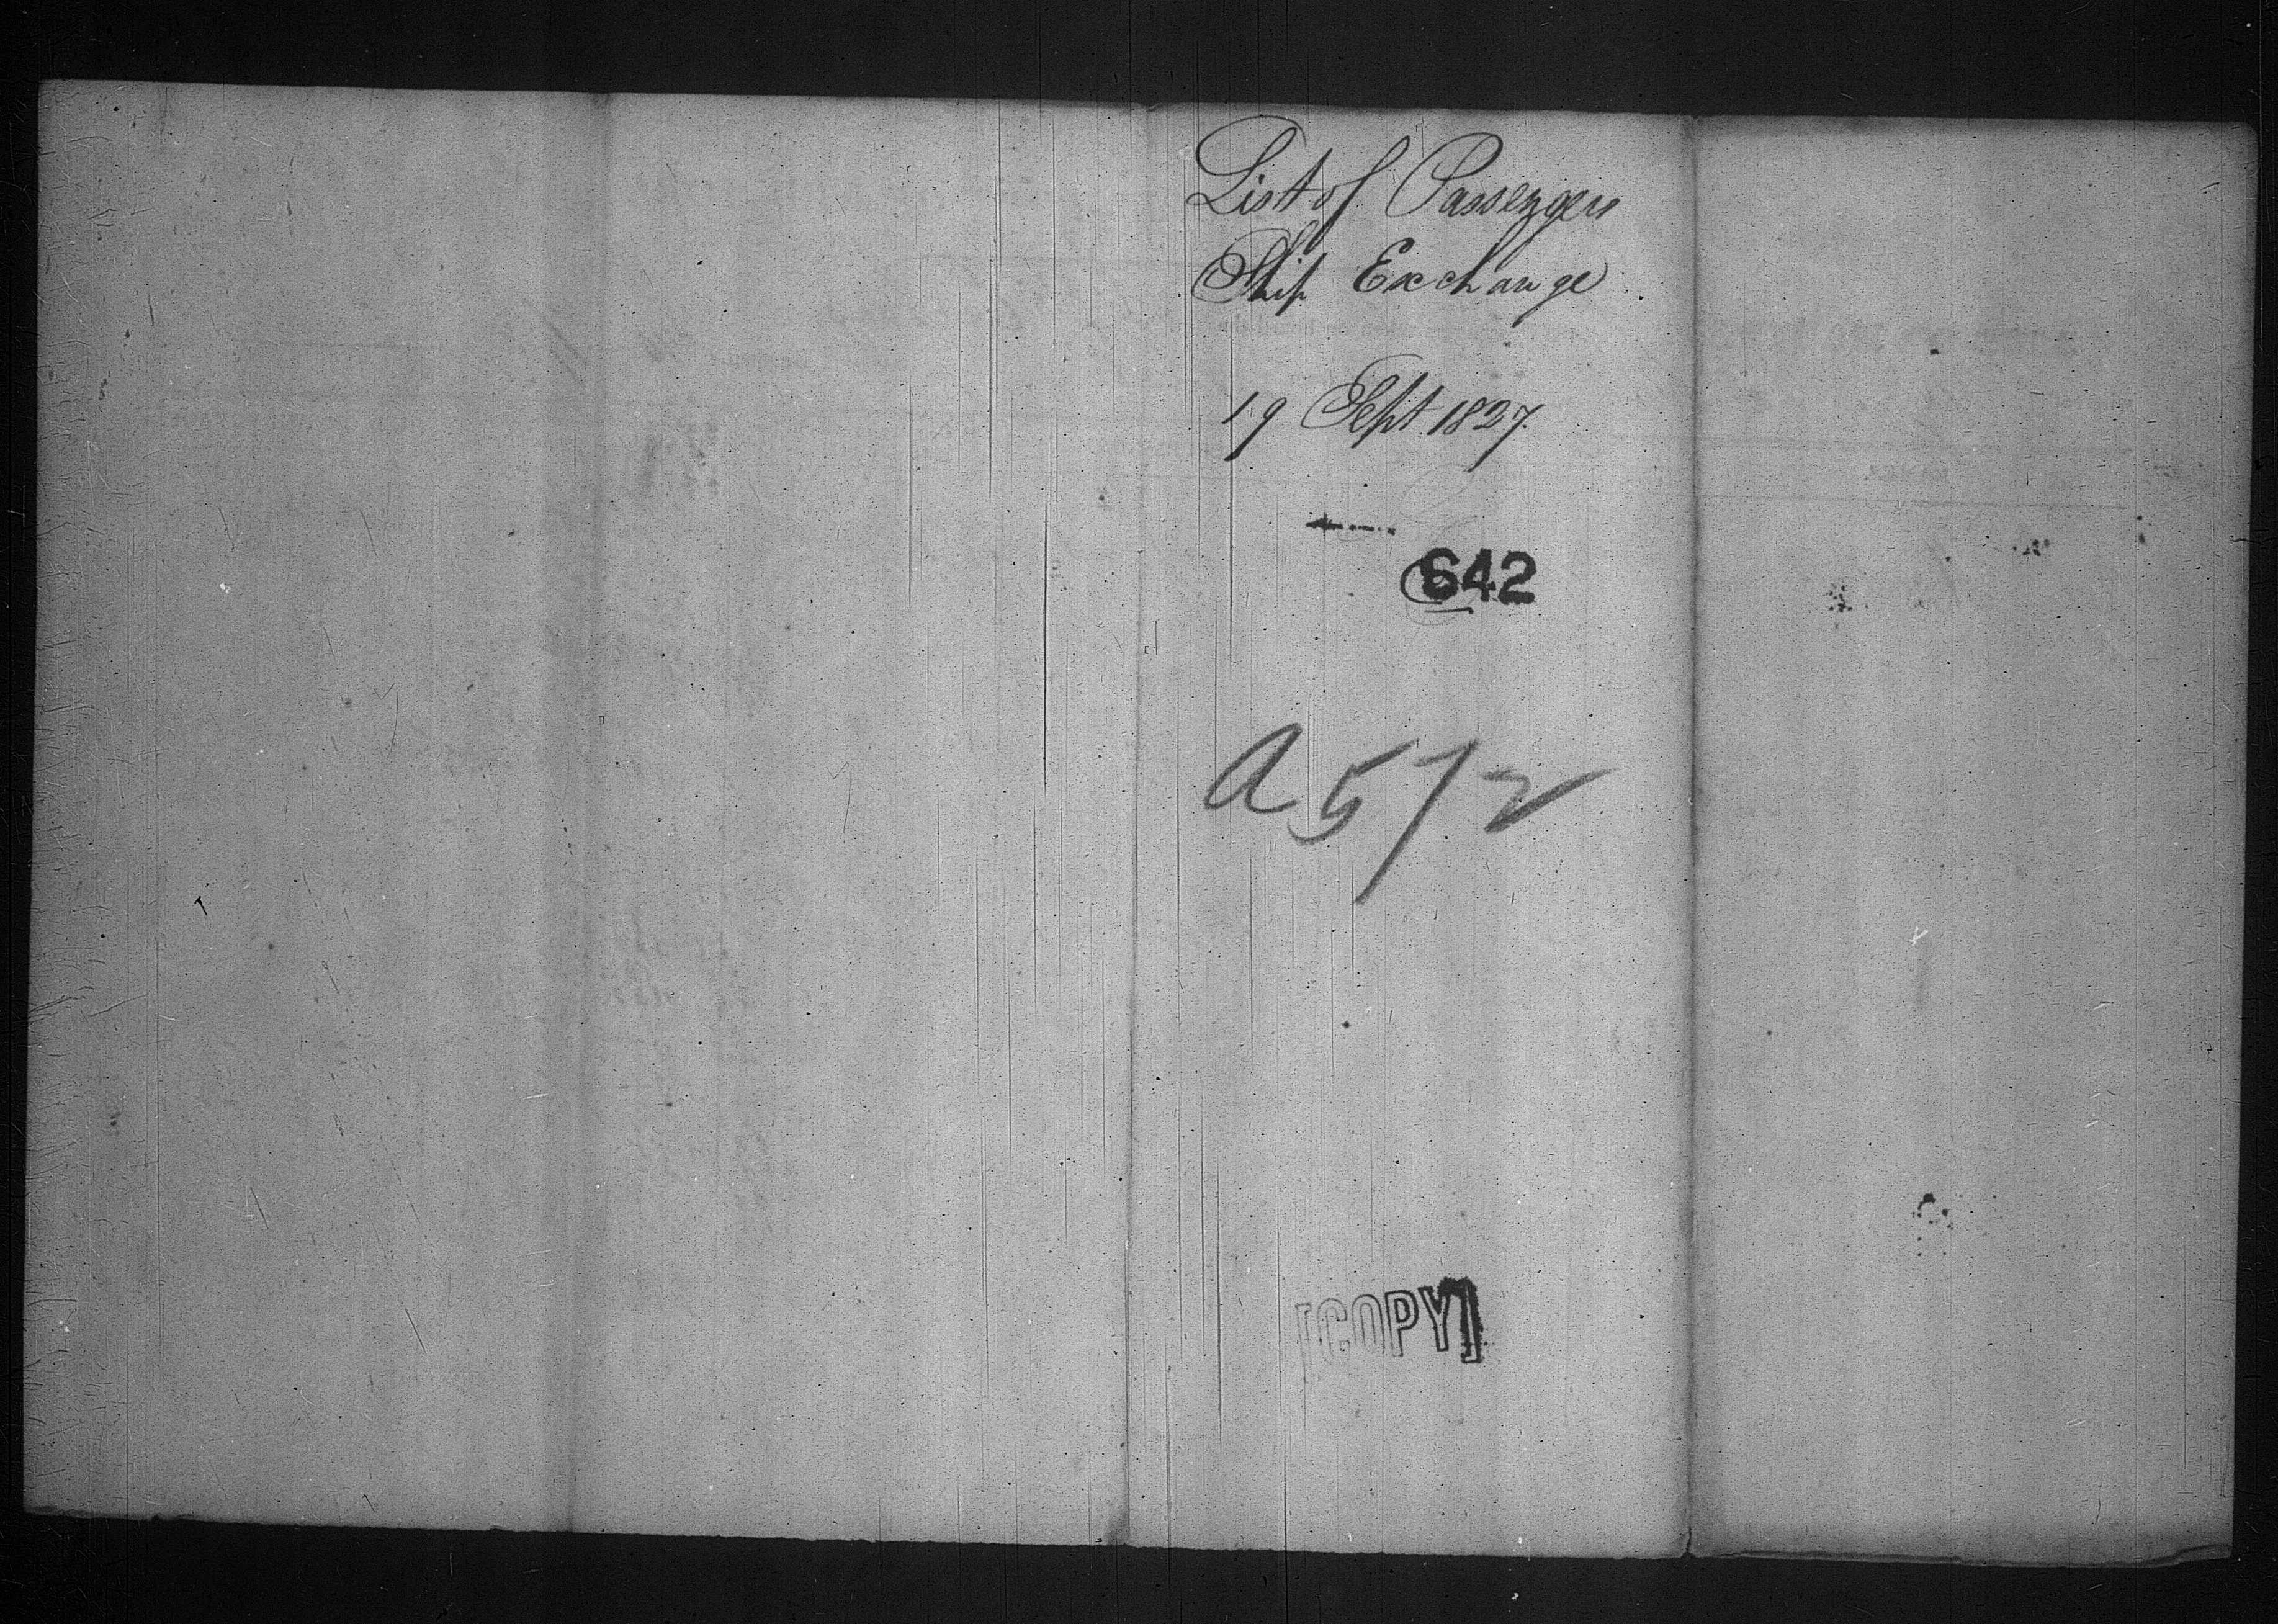 List of Passengers
Ship Exchange
19 Sept. 1827.
642
A 572
[COPY]